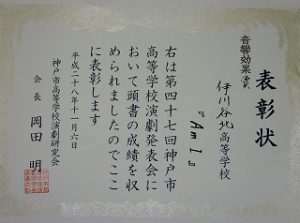 表彰状
音響効果賞
伊川谷北高等学校
『Am I』
右は第四十七回神戸市
高等学校演劇発表会に
おいて頭書の成績を収
められましたのでここ
に表彰します
平成二十八年十一月六日
神戸市高等学校演劇研究会
会長 岡田 明